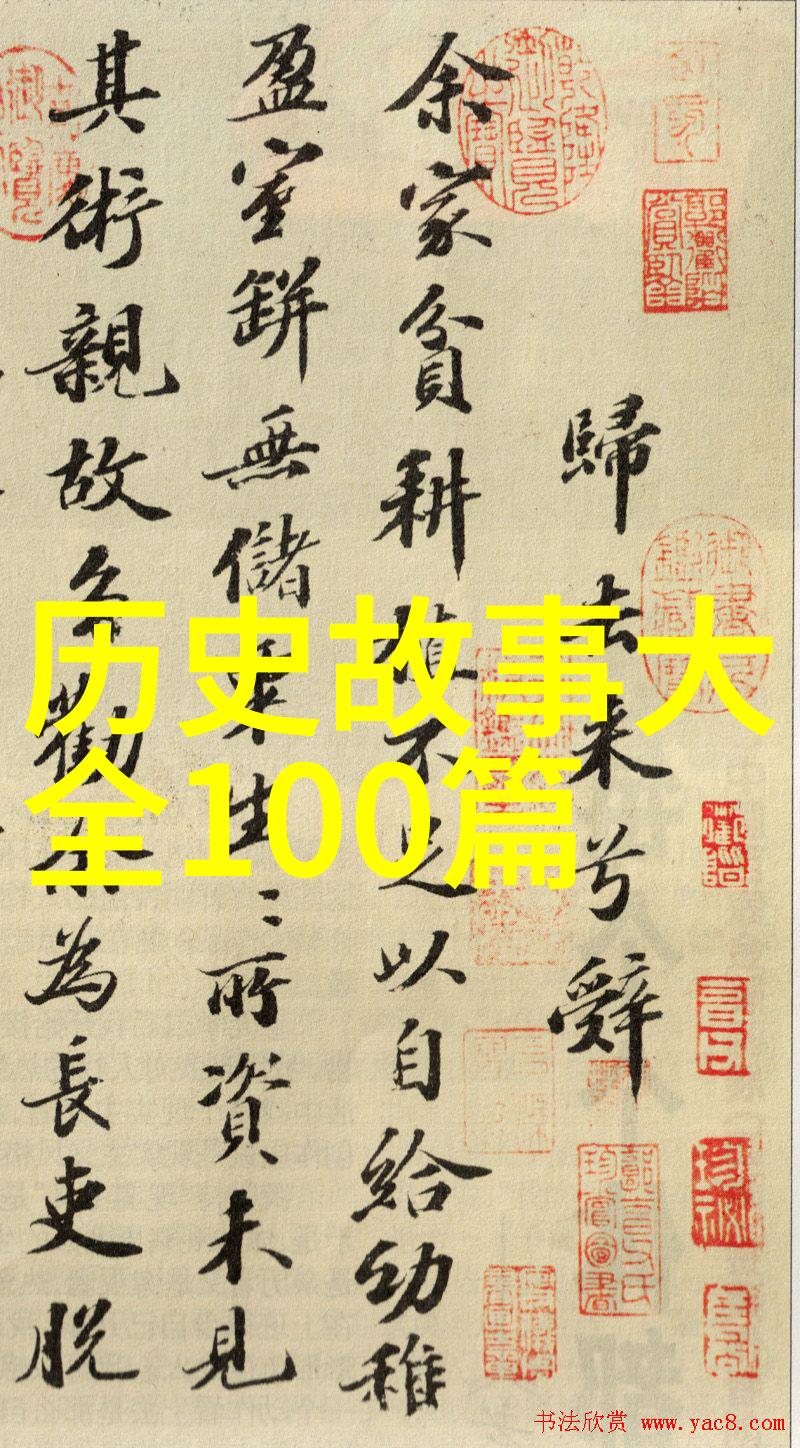 歸去来兮辭
余家貧耕植不足以自給幼稚
盈室缾無儲粟生〻所資未見
其術親故多勸余為長吏脱
历史故事大
全100篇
书法欣赏 www.yac8.com